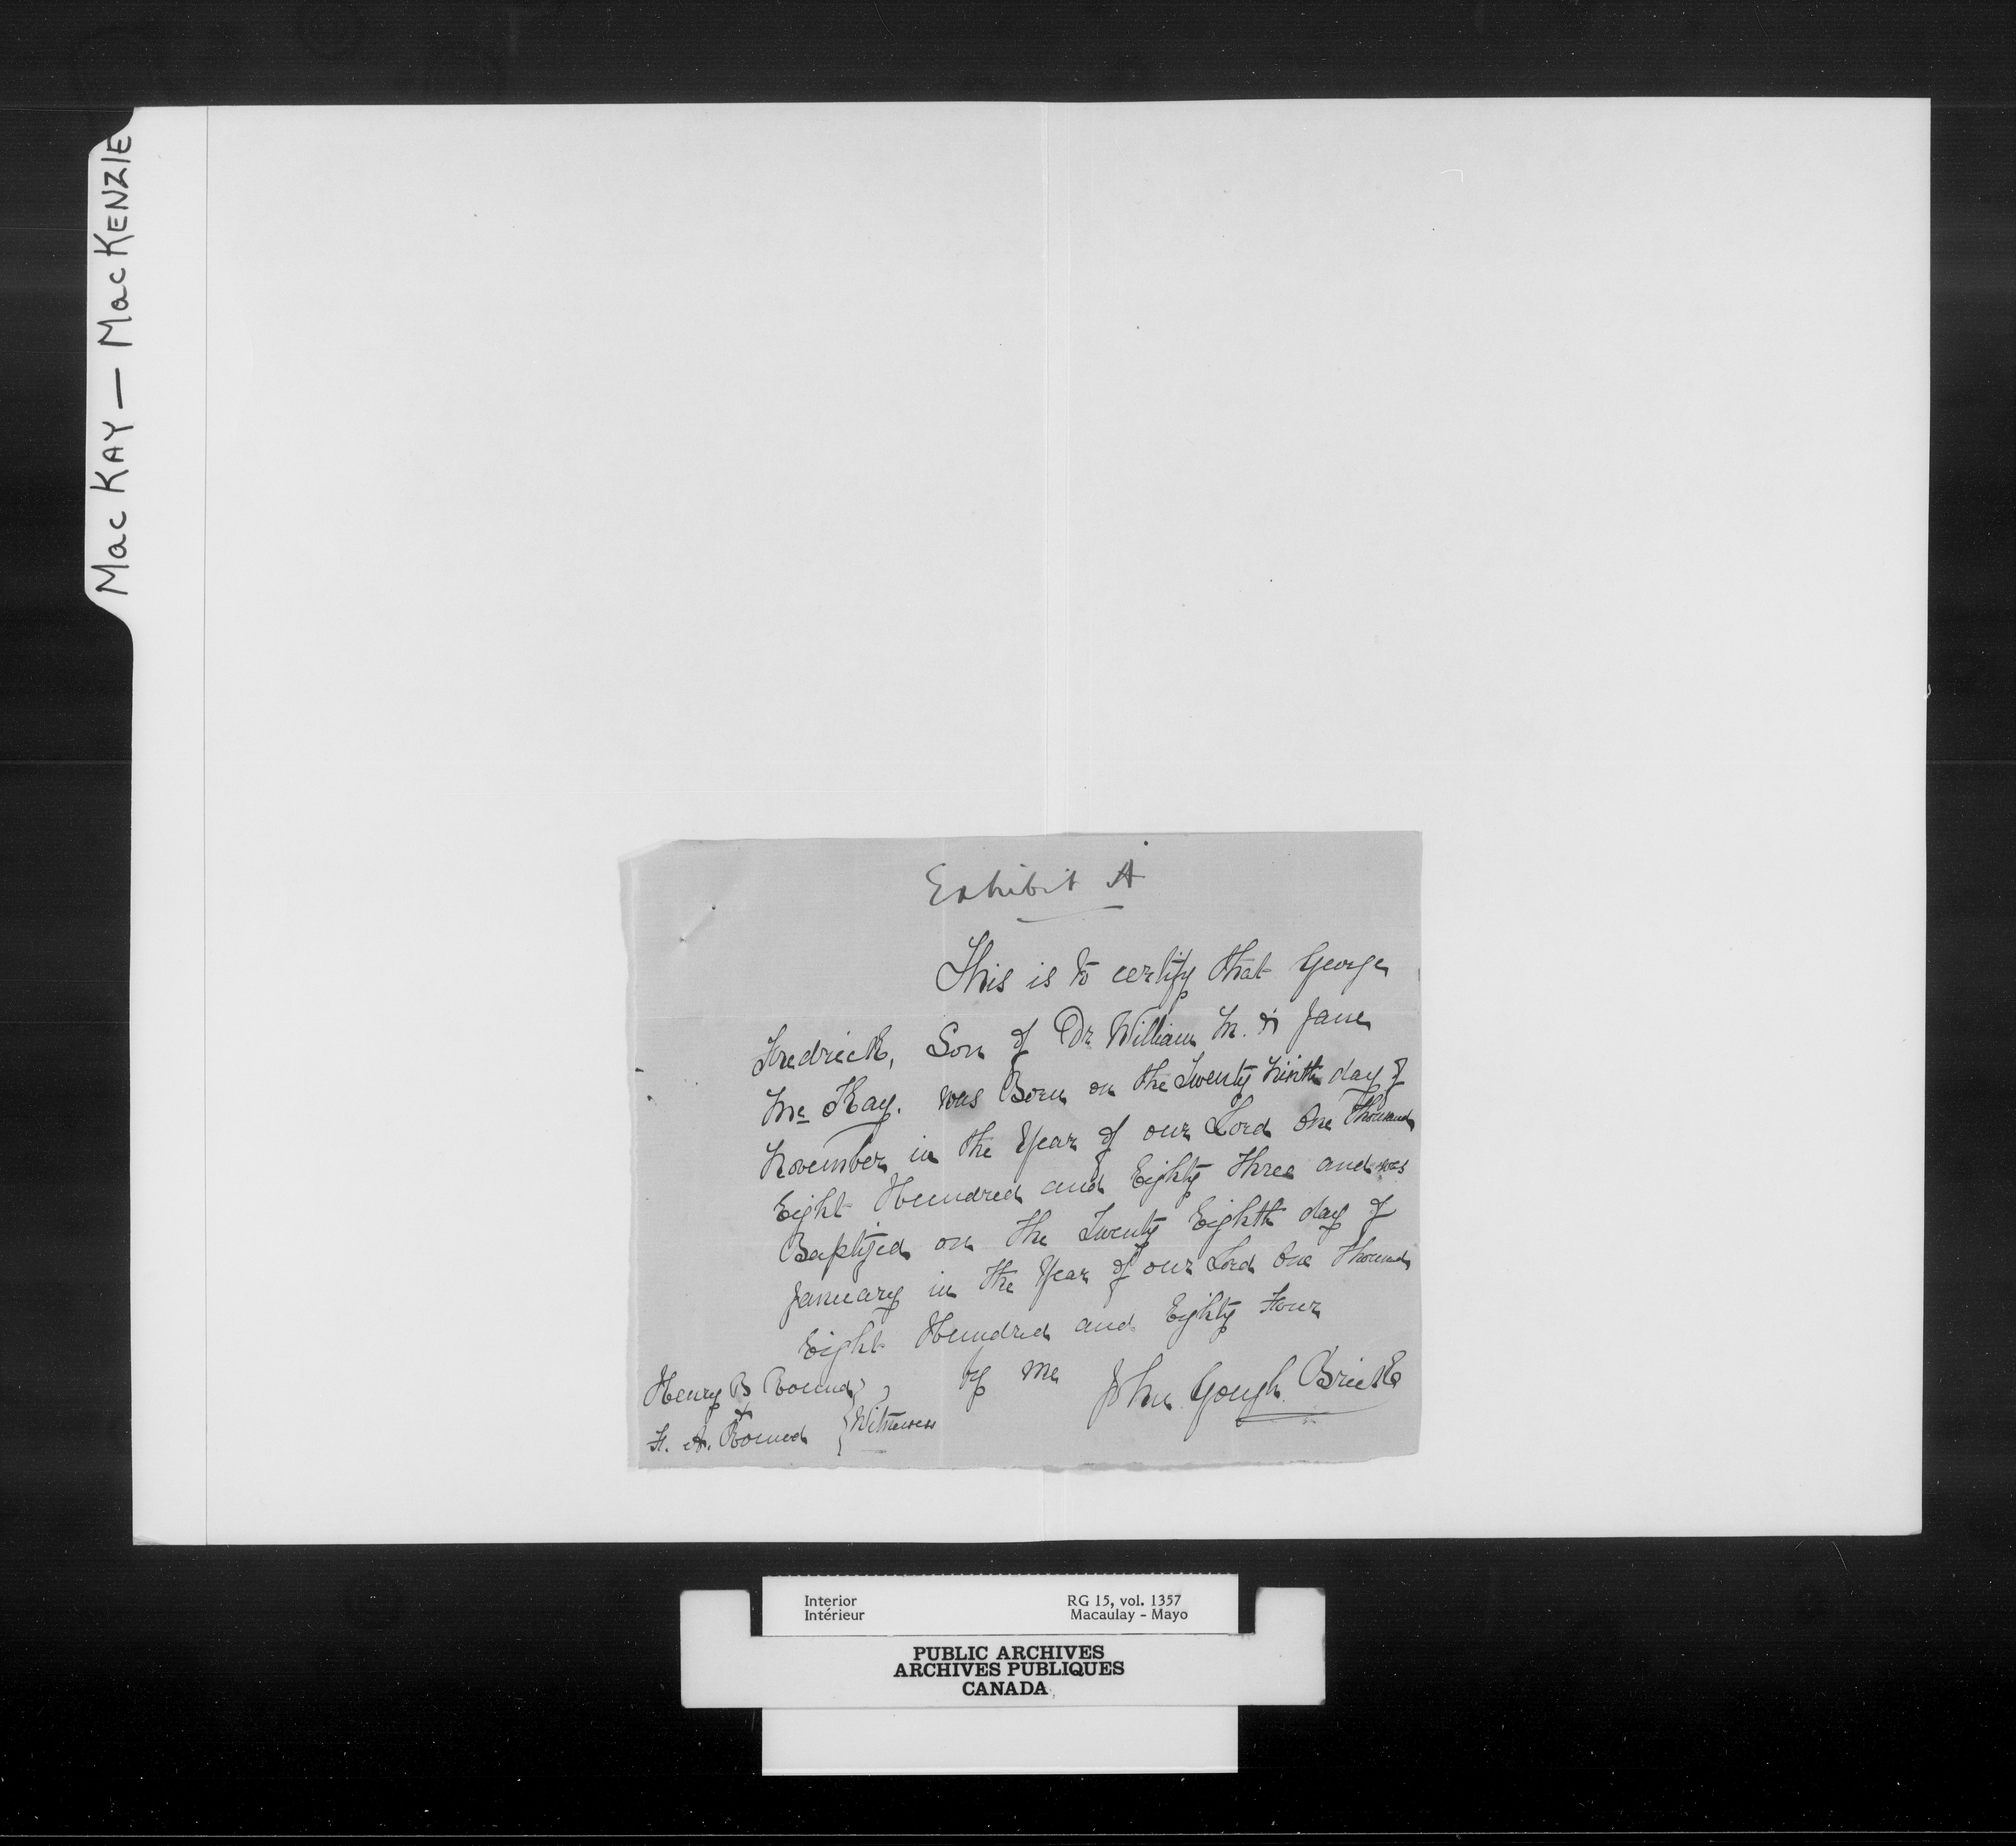 Mac KAY — MacKENZIE
Exhibit A
This is to certify that George
Fredrick, Son of Dr. William M. & Jane
Mc Kay. was Born on the Twenty Ninth day of
November in the Year of our Lord One Thousand
Eight Hundred and Eighty Three and was
Baptized on the Twenty Eighth day of
January in the Year of our Lord One Thousand
Eight Hundred and Eighty Four
by me John Gough Brick
Henry B Round
+
F. A. Round } Witnesses
Interior RG 15, vol. 1357
Intérieur Macaulay - Mayo
PUBLIC ARCHIVES
ARCHIVES PUBLIQUES
CANADA